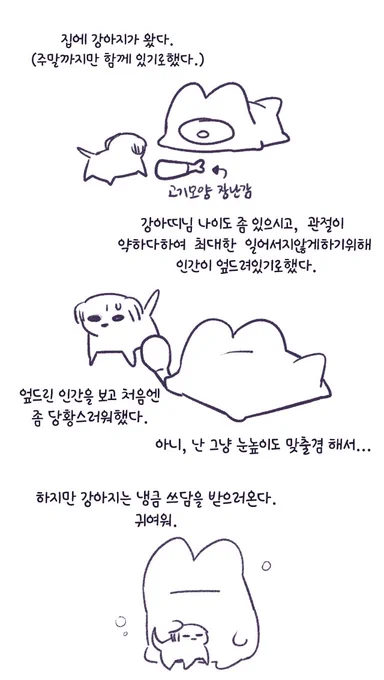 집에 강아지가 왔다.
(주말까지만 함께 있기로했다.)
고기모양 장난감
강아띠님 나이도 좀 있으시고, 관절이
약하다하여 최대한 일어서지않게하기위해
인간이 엎드려있기로했다.
엎드린 인간을 보고 처음엔
좀 당황스러워했다.
아니, 난 그냥 눈높이도 맞출겸 해서...
하지만 강아지는 냉큼 쓰담을 받으러온다.
귀여워.